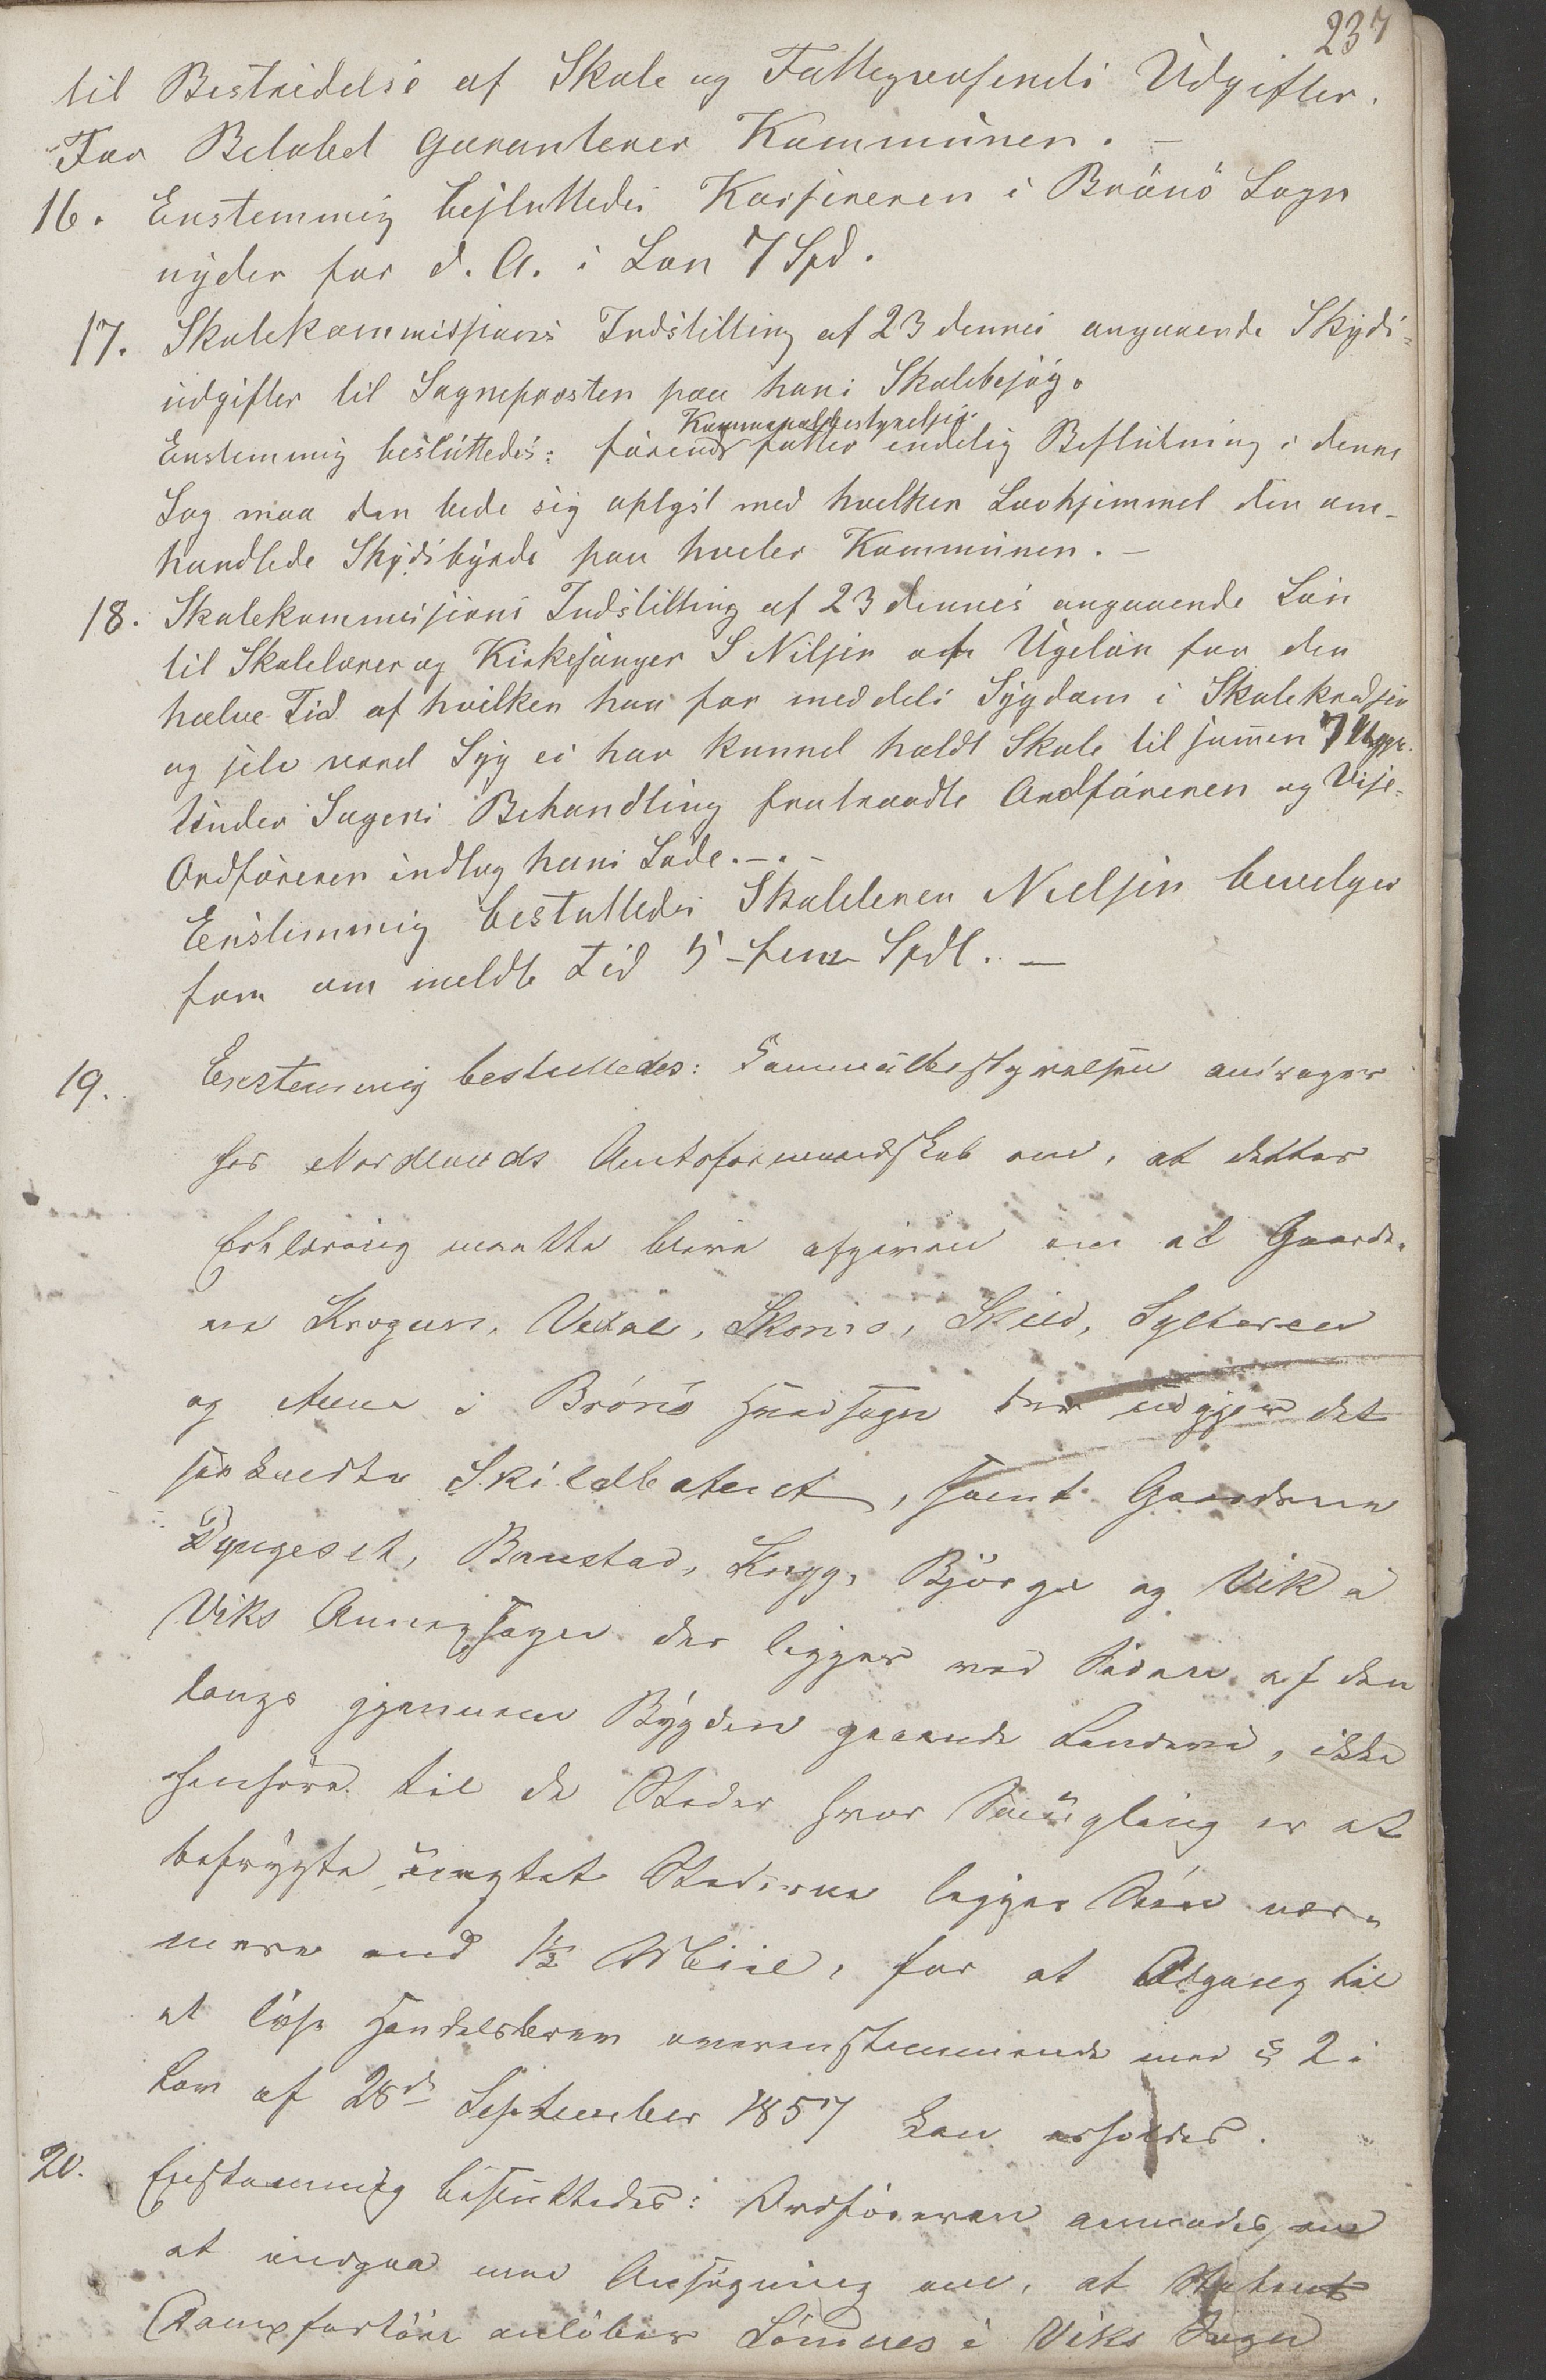 237
til Bestridelse af Skole og Fattigvæsenets Udgifter.
For Belobet garanterer Kommunen. –
16. Enstemmig besluttedes Kassereren i Brönö Sogn
nyder for d. A. i Lön 7 Spd.
17. Skolekommissions Indstilling af 23 dennes angaaende Skyds-
udgifter til Sogneprosten paa hans Skolebesög.
Kommunalbestyrelsen
Enstemmig besluttedes: förend fatter endelig Beslutning i denne
Sag maa den bede sig oplyst med hvilken Lovhjemmel den om-
handlede Skydsbyrde paa hviler Kommunen. –
18. Skolekommissions Indstilling af 23 dennes angaaende Lön
til Skolelærer og Kirkesanger S Nilsen af Ugelön for den
halve Tid af hvilken han for meddels Sygdom i Skolekredsen
og selv været Syg ei har kunnet holdt Skole til sammen 7 Uger.
Under Sagens Behandling fratraadte Ordföreren og Vise-
Ordföreren indtog hans Sæde. – . –
Enstemmig besluttedes Skolelærer Nielsen bevilges
for om meldte Tid 5 - fem - Spdl. . –
19. Enstemmig besluttedes: Communalbestyrelsen andrager
hos Nordlands Amtsformandskab om, at dettes
Erklæring maatte blive afgiven om at Gaarde-
ne Krogen, Vetal, Skomo, Skild, Sylteren
og Aune i Brönö Hovedsogn der udgjör det
saakaldte Skildbotnet, samt Gaardene
Dyngeset, Brustad, Krygg, Björge og Vik i
Viks Annexsogn der ligger ved Siden af den
langs gjennem Bygden gaaende Landevei, ikke
henhöre til de Steder hvor Smugling er at
befrygte, uagtet Stederne ligger Söen nær-
mere end 1½ Miil, for at Adgang til
at löse Handelsbrev overensstemmende med § 2 i
Lov af 28de September 1857 kan erholdes.
20. Enstemmig besluttedes: Ordföreren anmodes om
at indgaa med Ansögning om, at Statens
Dampfartöier anlöber Sömnes i Viks Sogn